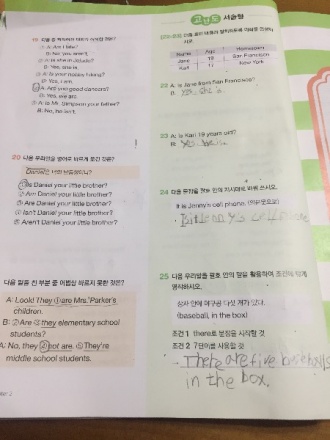 19 다음 중
① A: Am I late?
B: No, you aren't.
② A: Is she
B: Yes, she is.
③ A: Is your hobby hiking?
B: Yes, I am.
④ A: Are you good dancers?
B: Yes, we are.
⑤ A: Is Mr. Simpson your father?
B: No, he isn't.
20 다음 우리말을 영어로 바르게 옮긴 것은?
Daniel은 너의 남동생이니?
① Is Daniel your little brother?
② Am Daniel your little brother?
③ Are Daniel your little brother?
④ Isn't Daniel your little brother?
⑤ Aren't Daniel your little brother?
다음 밑줄 친 부분 중 어법상 바르지 못한 것은?
A: Look! They ① are Mrs. Parker's
children.
B: ② Are ③ they elementary school
students?
A: No, they ④ not are. ⑤ They're
middle school students.
서술형
Name Age Hometown
Jane 19 San Francisco
Karl 17 New York
22 A: Is Jane from San Francisco?
B: yes she is
23 A: Is Karl 19 years old?
B:
24 다음 문장을 괄호 안의 지시대로 바꿔 쓰시오.
It is Jenny's cell phone. (의문문으로)
Is it Jenny's cell phone
25 다음 우리말을 괄호 안의 말을 활용하여 조건에 맞게
영작하시오.
상자 안에 야구공 다섯 개가 있다.
(baseball, in the box)
조건 1 there로 문장을 시작할 것
조건 2 7단어를 사용할 것
There are five baseballs
in the box.